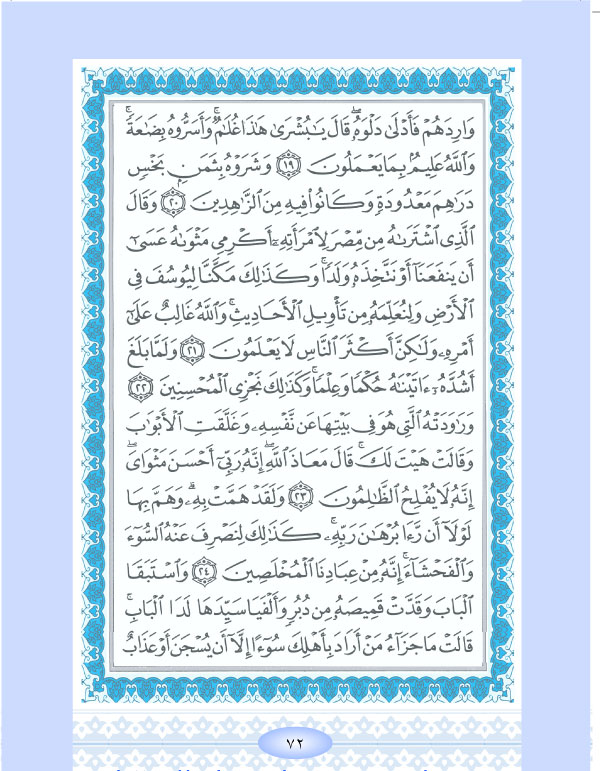 وَارِدَهُمْ فَأَدْلَىٰ دَلْوَهُۥۖ قَالَ يَٰبُشْرَىٰ هَٰذَا غُلَٰمٌۚ وَأَسَرُّوهُ بِضَٰعَةٗۚ
وَٱللَّهُ عَلِيمُۢ بِمَا يَعْمَلُونَ ١٩ وَشَرَوْهُ بِثَمَنِۭ بَخْسٖ
دَرَٰهِمَ مَعْدُودَةٖ وَكَانُوا۟ فِيهِ مِنَ ٱلزَّٰهِدِينَ ٢٠ وَقَالَ
ٱلَّذِى ٱشْتَرَىٰهُ مِن مِّصْرَ لِٱمْرَأَتِهِۦٓ أَكْرِمِى مَثْوَىٰهُ عَسَىٰٓ
أَن يَنفَعَنَآ أَوْ نَتَّخِذَهُۥ وَلَدٗاۚ وَكَذَٰلِكَ مَكَّنَّا لِيُوسُفَ فِى
ٱلْأَرْضِ وَلِنُعَلِّمَهُۥ مِن تَأْوِيلِ ٱلْأَحَادِيثِۚ وَٱللَّهُ غَالِبٌ عَلَىٰٓ
أَمْرِهِۦ وَلَٰكِنَّ أَكْثَرَ ٱلنَّاسِ لَا يَعْلَمُونَ ٢١ وَلَمَّا بَلَغَ
أَشُدَّهُۥٓ ءَاتَيْنَٰهُ حُكْمٗا وَعِلْمٗاۚ وَكَذَٰلِكَ نَجْزِى ٱلْمُحْسِنِينَ ٢٢
وَرَٰوَدَتْهُ ٱلَّتِى هُوَ فِى بَيْتِهَا عَن نَّفْسِهِۦ وَغَلَّقَتِ ٱلْأَبْوَٰبَ
وَقَالَتْ هَيْتَ لَكَۚ قَالَ مَعَاذَ ٱللَّهِۖ إِنَّهُۥ رَبِّىٓ أَحْسَنَ مَثْوَاىَۖ
إِنَّهُۥ لَا يُفْلِحُ ٱلظَّٰلِمُونَ ٢٣ وَلَقَدْ هَمَّتْ بِهِۦۖ وَهَمَّ بِهَا
لَوْلَآ أَن رَّءَا بُرْهَٰنَ رَبِّهِۦۚ كَذَٰلِكَ لِنَصْرِفَ عَنْهُ ٱلسُّوٓءَ
وَٱلْفَحْشَآءَۚ إِنَّهُۥ مِنْ عِبَادِنَا ٱلْمُخْلَصِينَ ٢٤ وَٱسْتَبَقَا
ٱلْبَابَ وَقَدَّتْ قَمِيصَهُۥ مِن دُبُرٖ وَأَلْفَيَا سَيِّدَهَا لَدَا ٱلْبَابِۚ
قَالَتْ مَا جَزَآءُ مَنْ أَرَادَ بِأَهْلِكَ سُوٓءًا إِلَّآ أَن يُسْجَنَ أَوْ عَذَابٌ
٧٢